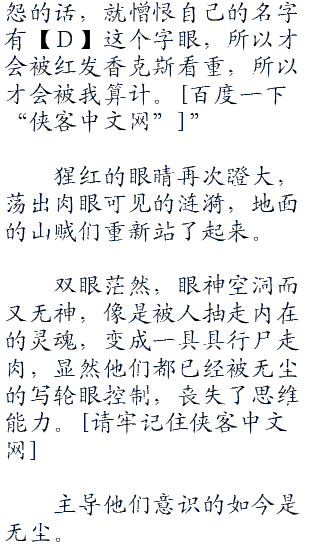 怨的话，就憎恨自己的名字
有【D】这个字眼，所以才
会被红发香克斯看重，所以
才会被我算计。[百度一下
“侠客中文网”]”
猩红的眼睛再次瞪大，
荡出肉眼可见的涟漪，地面
的山贼们重新站了起来。
双眼茫然，眼神空洞而
又无神，像是被人抽走内在
的灵魂，变成一具具行尸走
肉，显然他们都已经被无尘
的写轮眼控制，丧失了思维
能力。[请牢记住侠客中文
网]
主导他们意识的如今是
无尘。